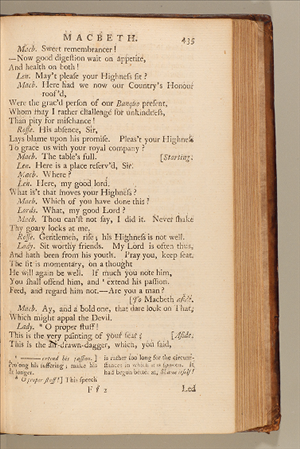 MACBETH. 435
Macb. Sweet remembrancer!
—Now good digestion wait on appetite,
And health on both!
Len. May't please your Highness sit?
Macb. Here had we now our Country's Honour
roof'd,
Were the grac'd person of our Banquo present,
Whom may I rather challenge for unkindness,
Than pity for mischance!
Rosse. His absence, Sir,
Lays blame upon his promise. Pleas't your Highness
To grace us with your royal company?
Macb. The table's full. [Starting.
Len. Here is a place reserv'd, Sir.
Macb. Where?
Len. Here, my good lord.
What is't that moves your Highness?
Macb. Which of you have done this?
Lords. What, my good Lord?
Macb. Thou can'st not say, I did it. Never shake
Thy goary locks at me.
Rosse. Gentlemen, rise; his Highness is not well.
Lady. Sit worthy friends. My Lord is often thus,
And hath been from his youth. Pray you, keep seat.
The fit is momentary, on a thought
He will again be well. If much you note him,
You shall offend him, and ' extend his passion.
Feed, and regard him not.—Are you a man?
[To Macbeth aside.
Macb. Ay, and a bold one, that dare look on That,
Which might appal the Devil.
Lady. * O proper stuff!
This is the very painting of your fear; [Aside.
This is the air-drawn-dagger, which, you said,
' —— extend his passion.]
Prolong his suffering; make his
fit longer.
* O proper stuff!] This speech
is rather too long for the circum-
stances in which it is spoken. It
had begun better at, Shame itself!
F f 2 Led